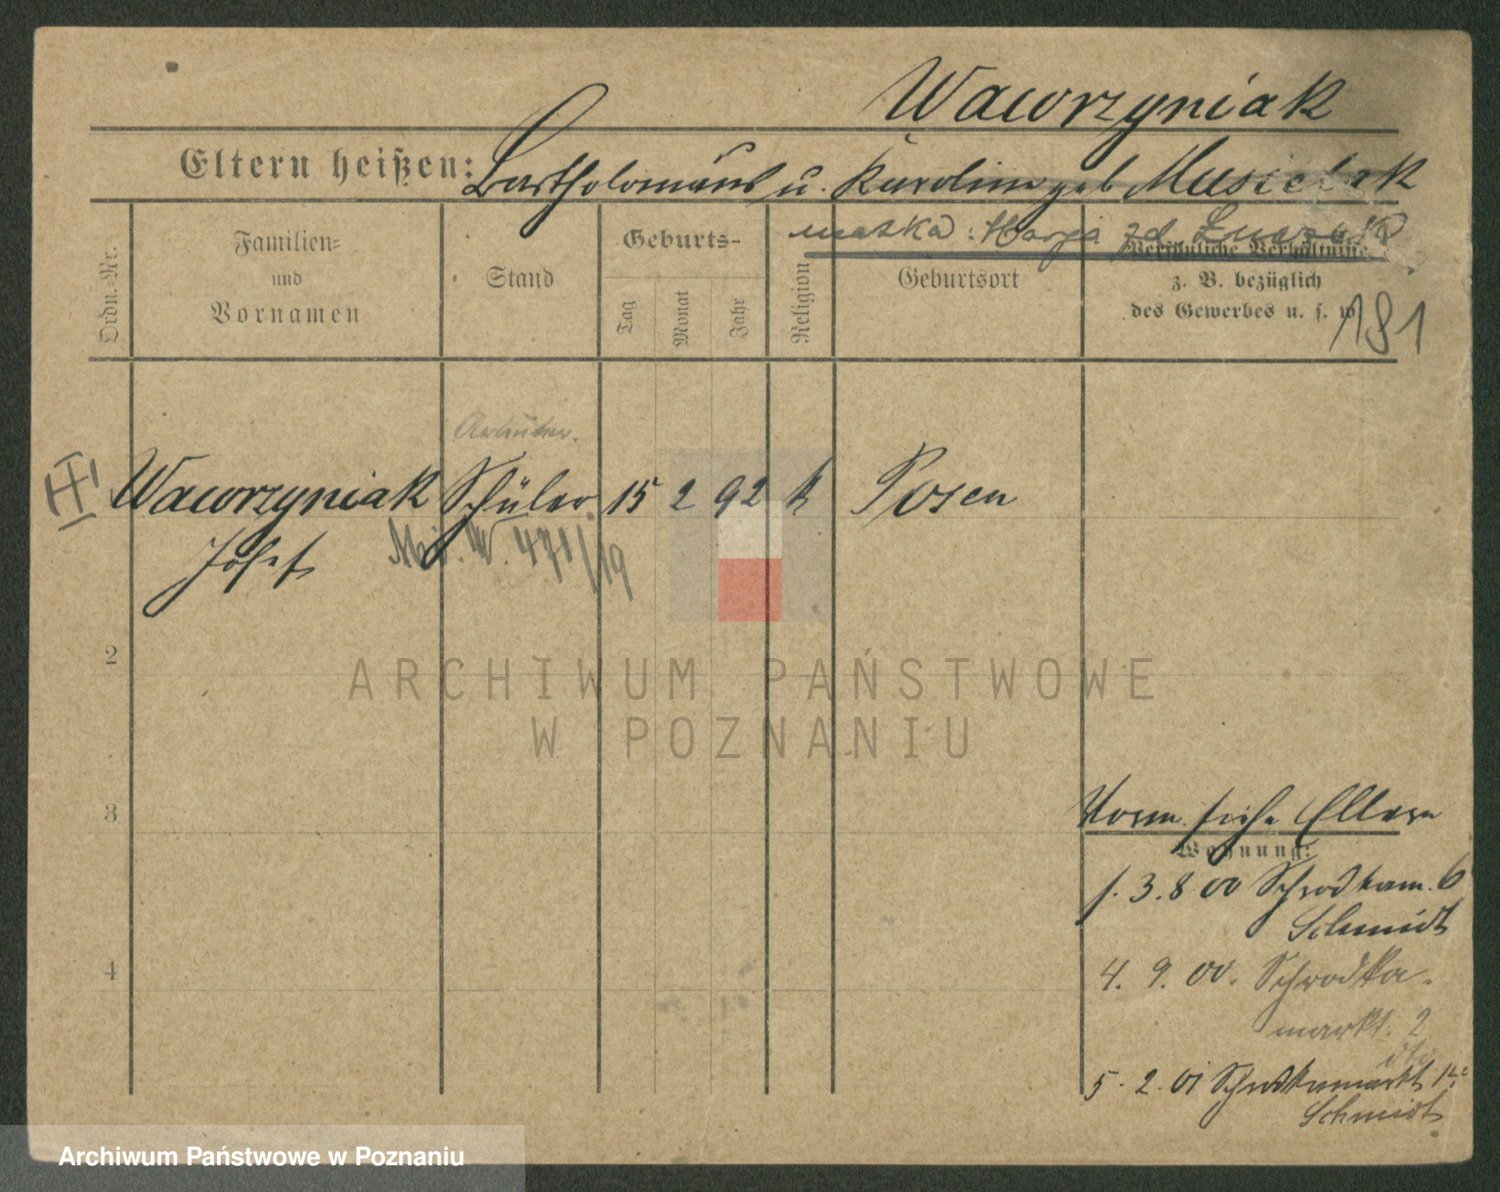 Wawrzyniak
Eltern heißen: Bartholomäus u. Karolina geb Musielak
matka: Marja zd
Ordn.-Nr.
Familien-
und
Vornamen
Stand
Geburts-
Tag
Monat
Jahr
Religion
Geburtsort
Persönliche Verhältnisse
z. B. bezüglich
des Gewerbes u. s. w.
191
Arbeiter.
Wawrzyniak Schüler 15 2 92 k Posen
Josef
471/19
2
3
4
Vorm. siehe Eltern
Wohnung:
f. 3.8 00 Schrodkam. 6
Schmidt
4. 9. 00. Schrodka-
markt. 2
5. 2. 01 Schrodkamarkt
Schmidt
ARCHIWUM PAŃSTWOWE
W POZNANIU
Archiwum Państwowe w Poznaniu